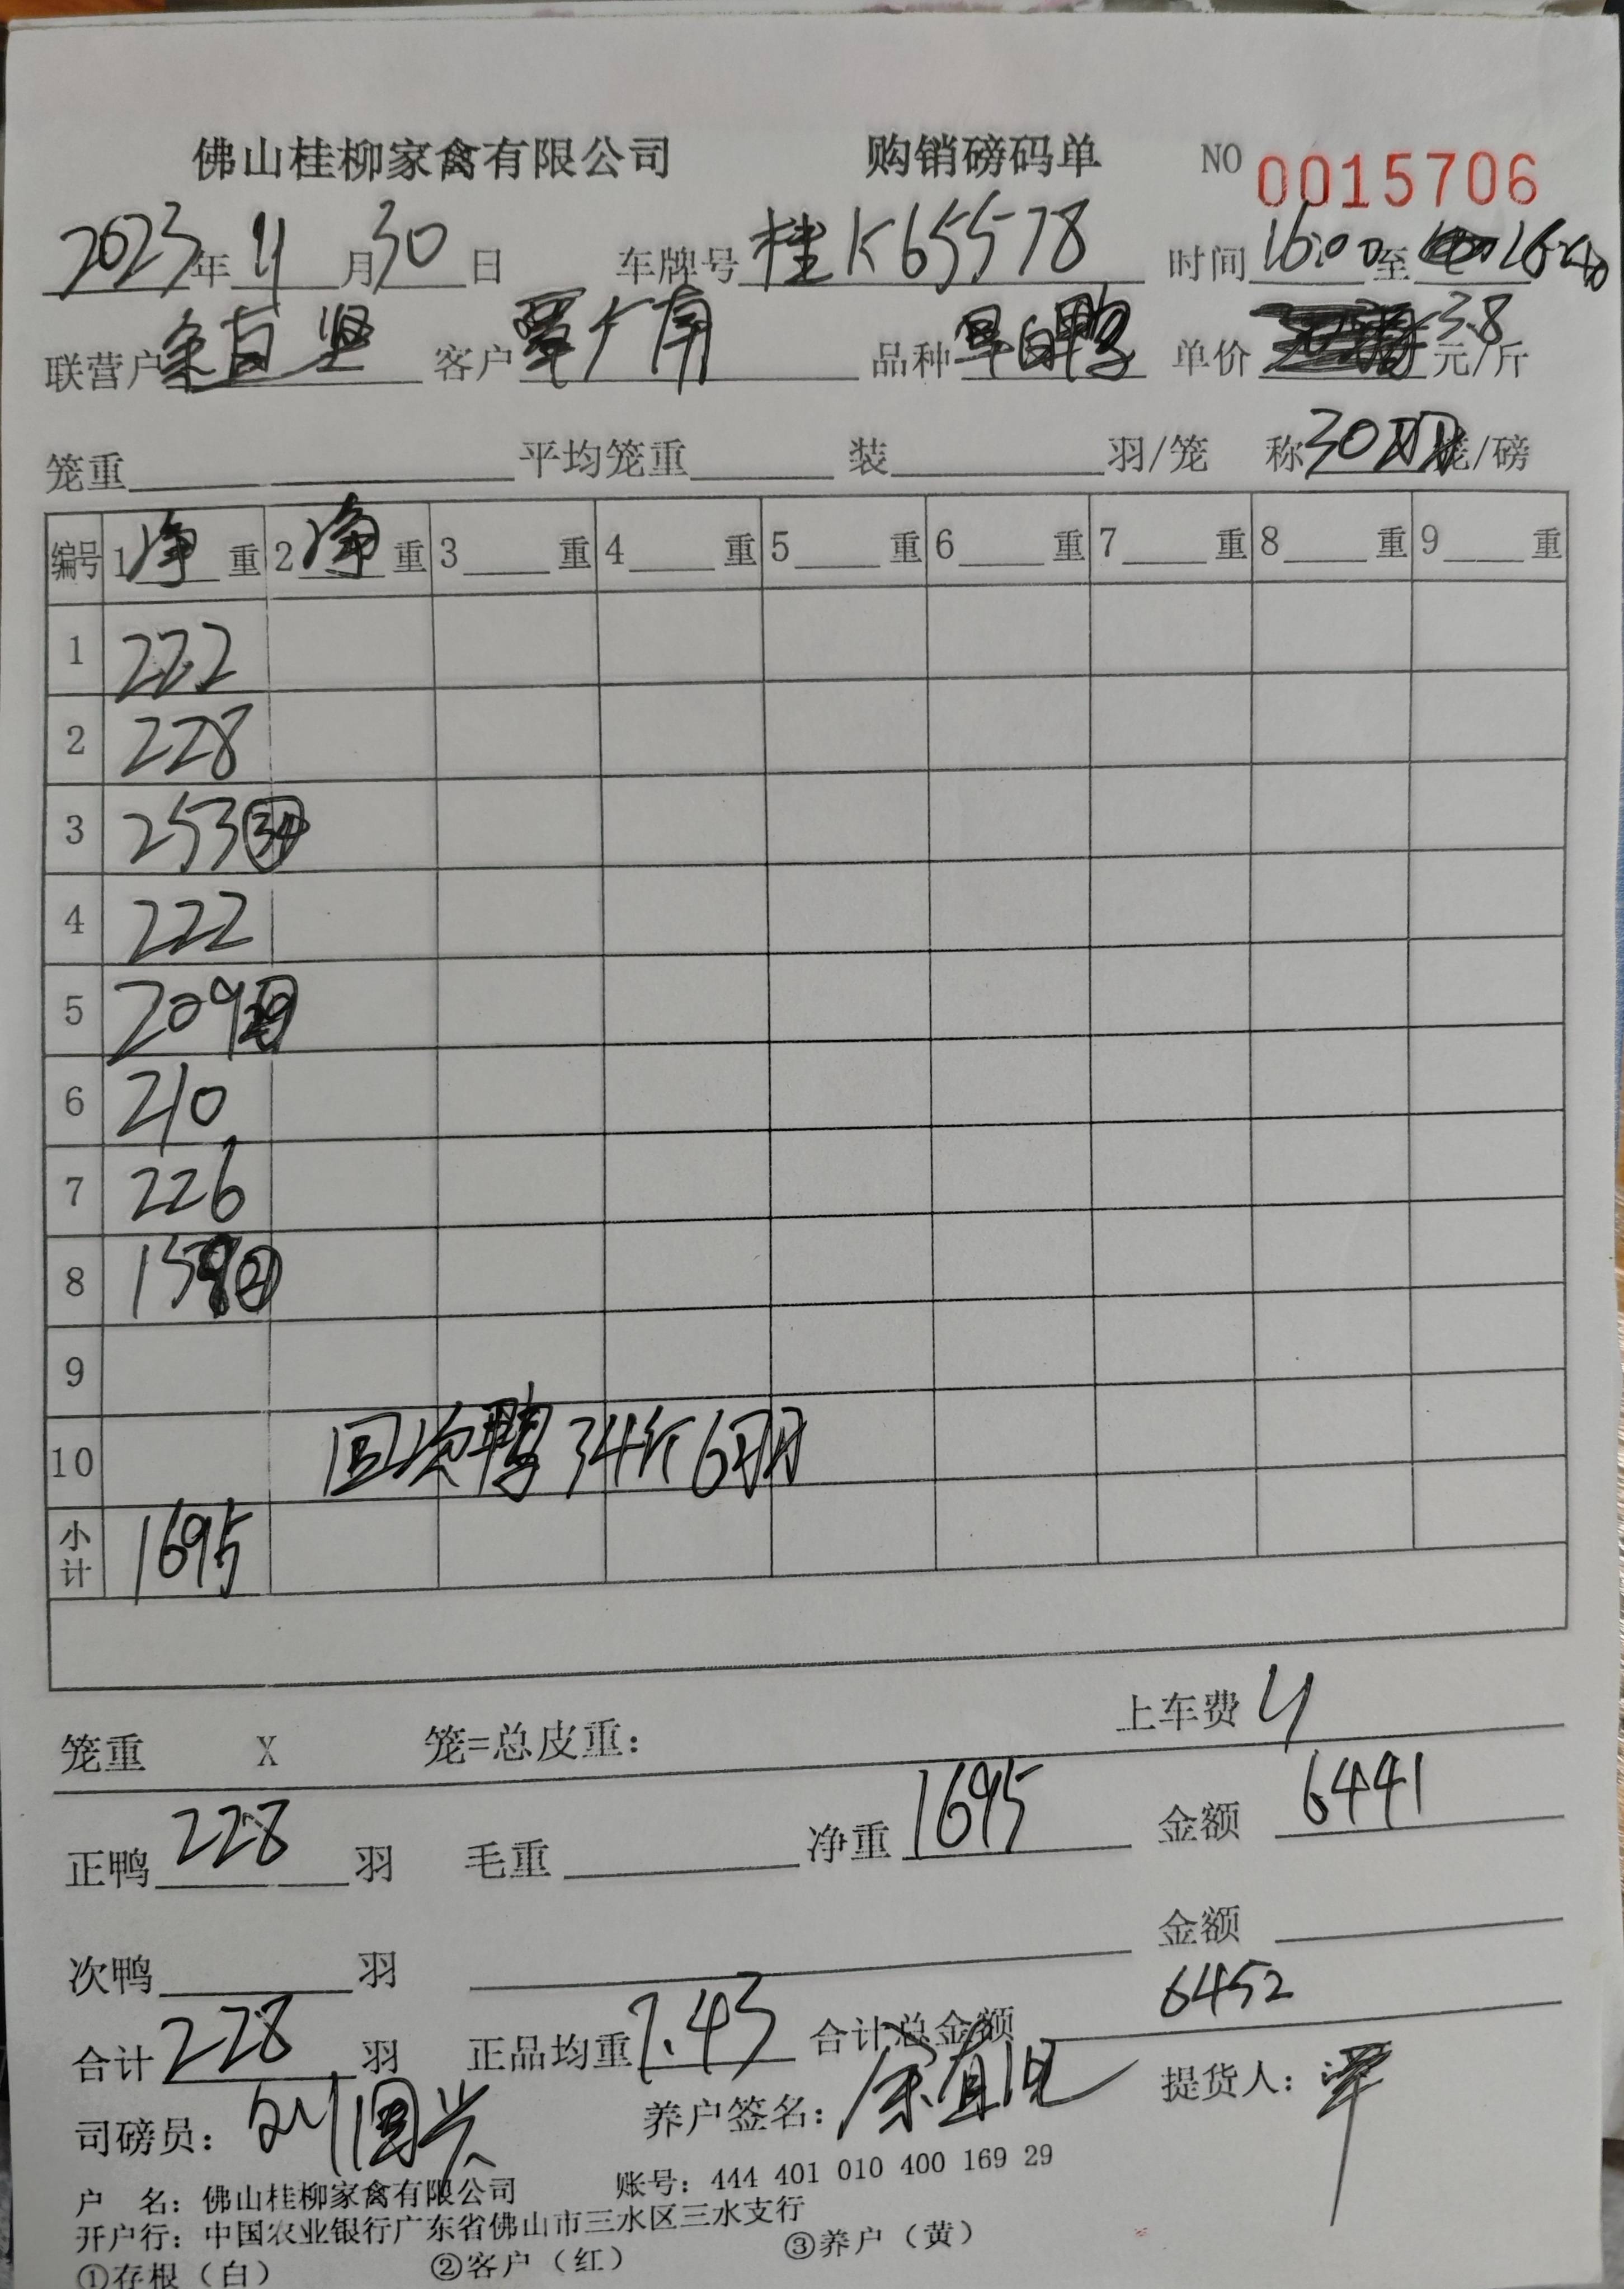 佛山桂柳家禽有限公司 购销磅码单 NO 0015706
2023年11月30日 车牌号 桂K65578 时间 16:00至 16:40
联营户 余 坚 客户 覃广南 品种 旱白鸭 单价 3.8 元/斤
笼重 平均笼重 装 羽/笼 称 30羽 笼/磅
编号 1 净 重 2 净 重 3 重 4 重 5 重 6 重 7 重 8 重 9 重
1 222
2 228
3 253 34
4 222
5 209
6 210
7 226
8 21
9
10 回次鸭34斤6羽
小计 1695
上车费 11
笼重 X 笼=总皮重：
正鸭 228 羽 毛重 净重 1695 金额 6441
次鸭 羽 金额
合计 228 羽 正品均重 7.43 合计总金额 6452
司磅员：刘国兴 养户签名： 提货人：覃
户 名：佛山桂柳家禽有限公司 账号：444 401 010 400 169 29
开户行：中国农业银行广东省佛山市三水区三水支行
①存根（白） ②客户（红） ③养户（黄）